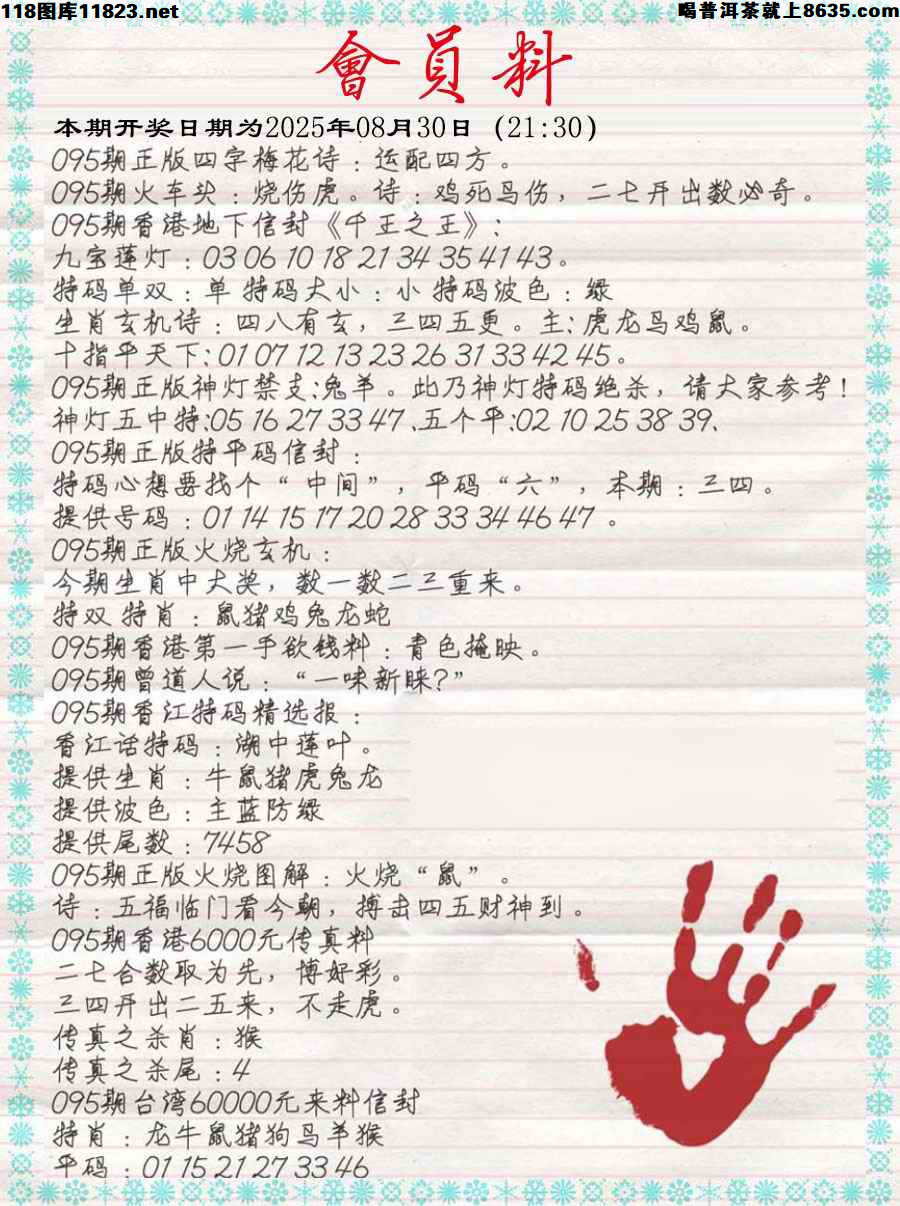 118图库11823.net
喝普洱茶就上8635.com
會員料
本期开奖日期为2025年08月30日 (21:30)
095期正版四字梅花诗：运配四方。
095期火车头：烧伤虎。诗：鸡死马伤，二七开出数必奇。
095期香港地下信封《千王之王》：
九宝莲灯：03 06 10 18 21 34 35 41 43。
特码单双：单 特码大小：小 特码波色：绿
生肖玄机诗：四八有玄，三四五更。主：虎龙马鸡鼠。
十指平天下:01 07 12 13 23 26 31 33 42 45。
095期正版神灯禁支:兔羊。此乃神灯特码绝杀，请大家参考！
神灯五中特:05 16 27 33 47、五个平:02 10 25 38 39、
095期正版特平码信封：
特码心想要找个“中间”，平码“六”，本期：三四。
提供号码：01 14 15 17 20 28 33 34 46 47 。
095期正版火烧玄机：
今期生肖中大奖，数一数二三重来。
特双 特肖：鼠猪鸡兔龙蛇
095期香港第一手欲钱料：青色掩映。
095期曾道人说：“一味新睐？”
095期香江特码精选报：
香江话特码：湖中莲叶。
提供生肖：牛鼠猪虎兔龙
提供波色：主蓝防绿
提供尾数：7458
095期正版火烧图解：火烧“鼠”。
诗：五福临门看今朝，搏击四五财神到。
095期香港6000元传真料
二七合数取为先，博好彩。
三四开出二五来，不走虎。
传真之杀肖：猴
传真之杀尾：4
095期台湾60000元来料信封
特肖：龙牛鼠猪狗马羊猴
平码：01 15 21 27 33 46